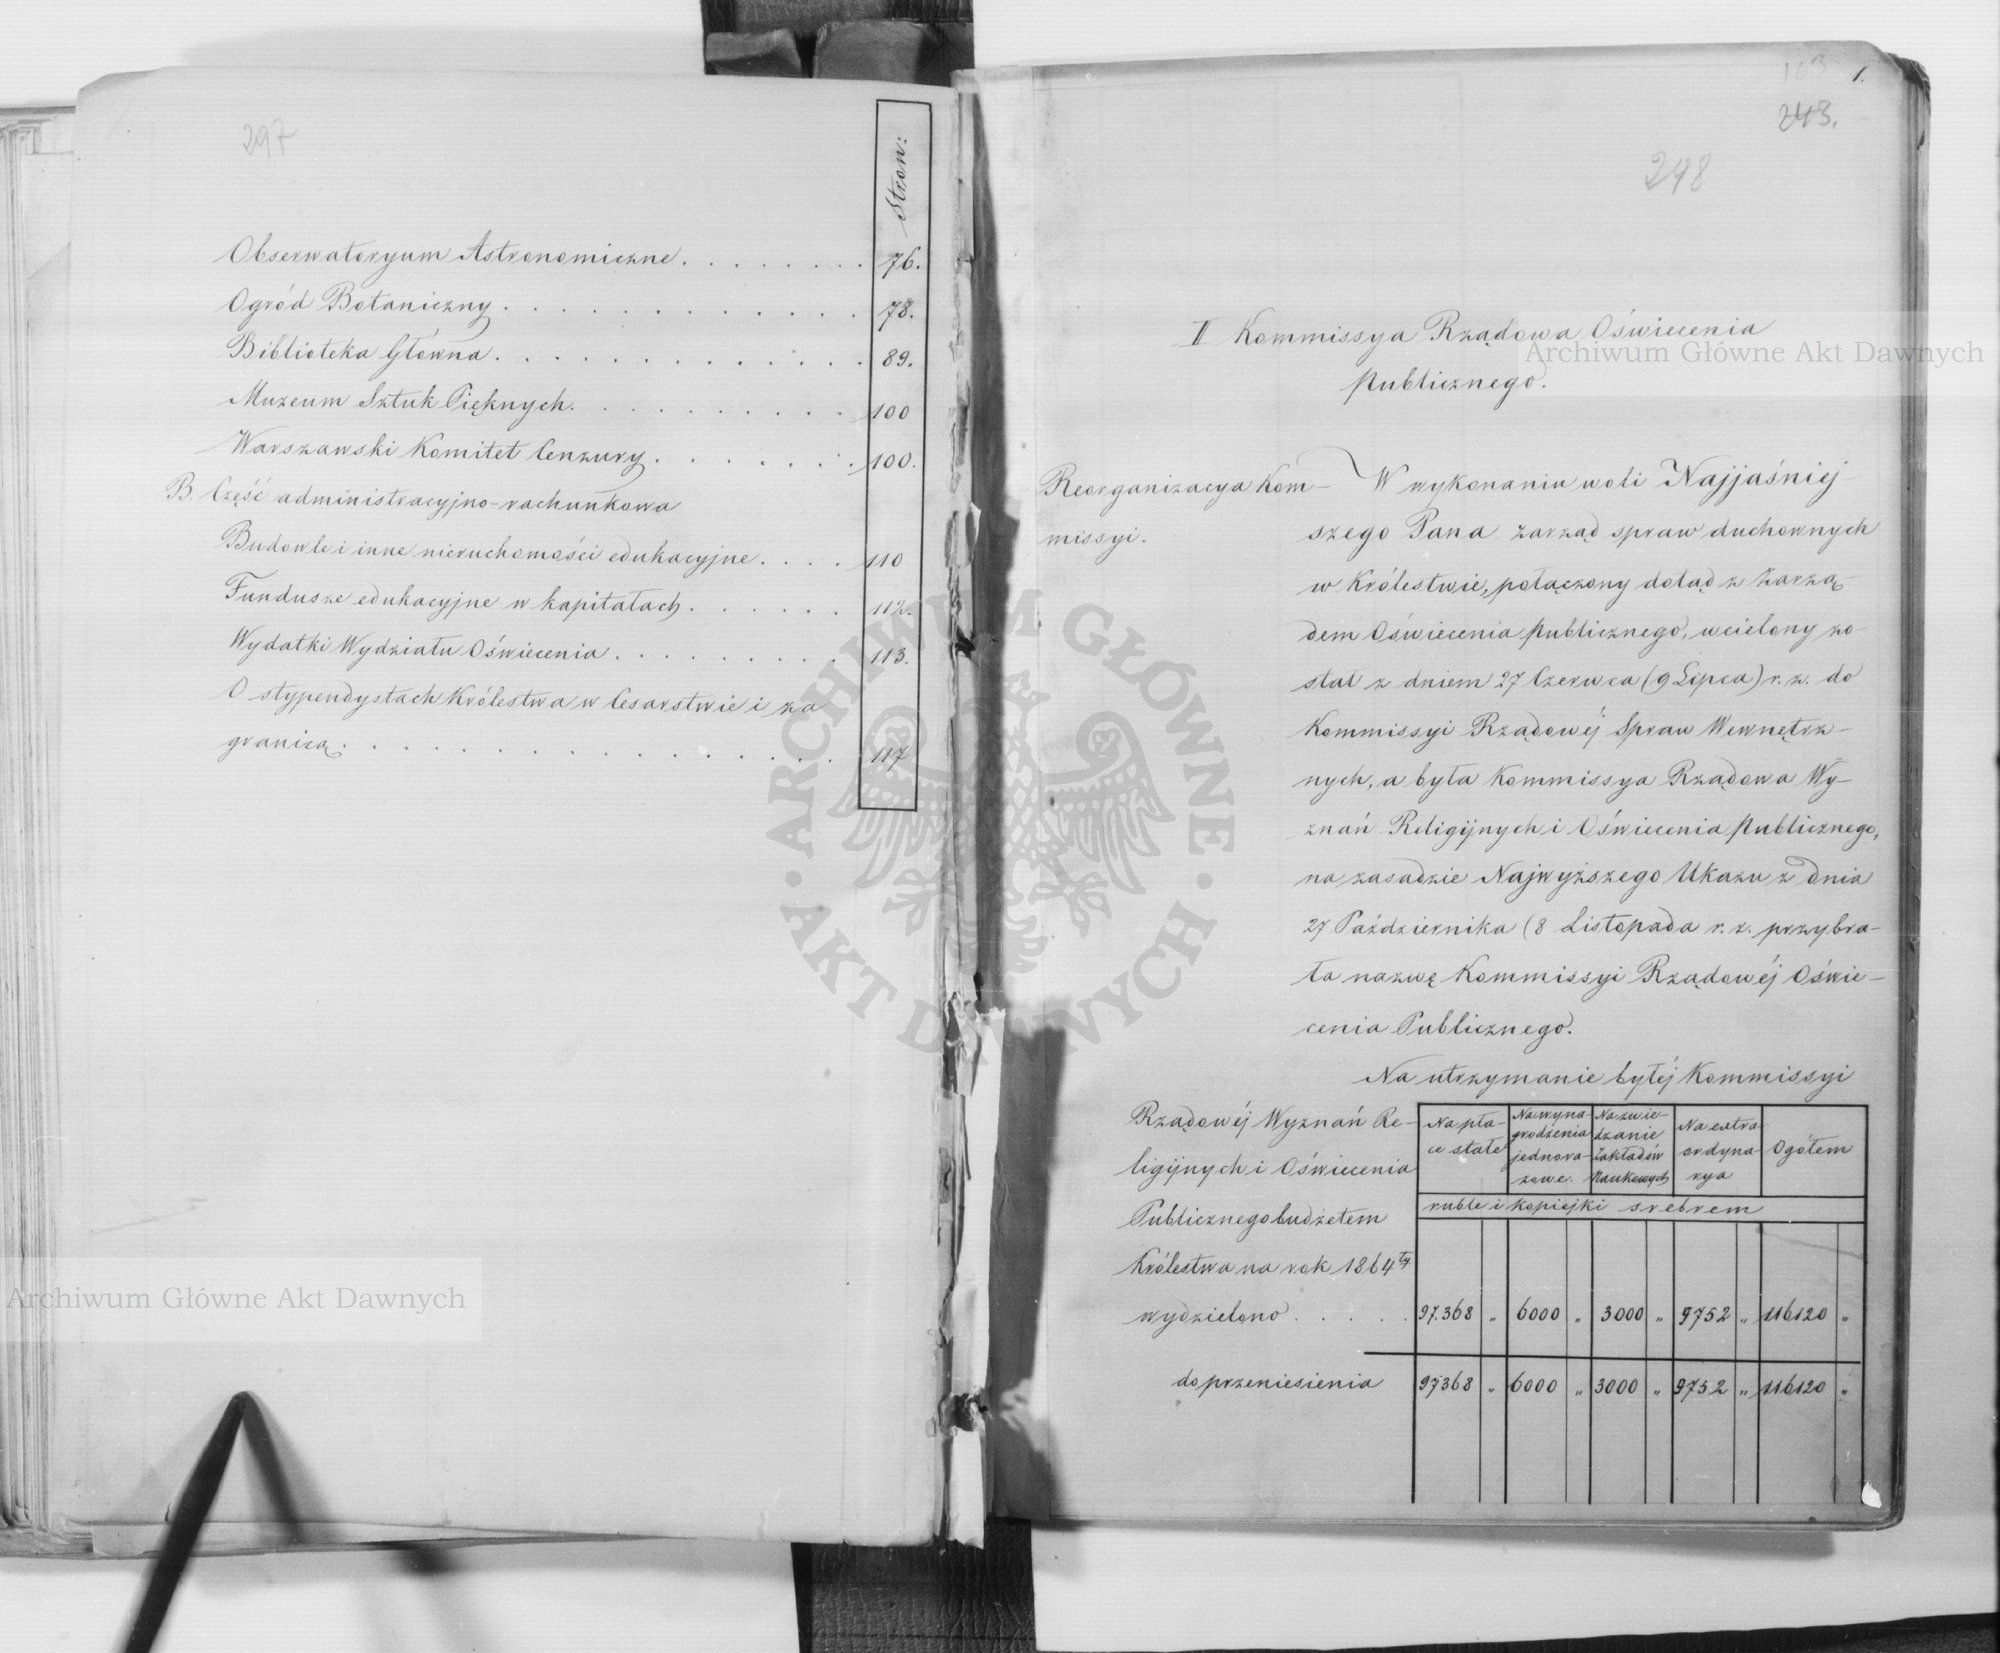 297
Stron:
Obserwatoryum Astronomiczne . . . . . . . . 76.
Ogród Botaniczny . . . . . . . . . . . . 78.
Biblioteka Główna . . . . . . . . . . . . 89.
Muzeum Sztuk Pięknych . . . . . . . . . . 100
Warszawski Komitet Cenzury . . . . . . . 100.
B. Część administracyjno-rachunkowa
Budowle i inne nieruchomości edukacyjne . . . . 110
Fundusze edukacyjne w kapitałach . . . . . . 112.
Wydatki Wydziału Oświecenia . . . . . . . . . 113.
O stypendystach Królestwa w Cesarstwie i za
granicą . . . . . . . . . . . . . . 117
1.
243.
298
II Kommissya Rządowa Oświecenia
Publicznego.
Reorganizacya Kom-
missyi.
W wykonaniu woli Najjaśniej
szego Pana zarząd spraw duchownych
w Królestwie, połączony dotąd z Zarzą-
dem Oświecenia Publicznego, wcielony zo-
stał z dniem 27 Czerwca (9 Lipca) r. z. do
Kommissyi Rządowéj Spraw Wewnętrz-
nych, a była Kommissya Rządowa Wy-
znań Religijnych i Oświecenia Publicznego,
na zasadzie Najwyższego Ukazu z dnia
27 Października (8 Listopada r. z. przybra-
ła nazwę Kommissyi Rządowéj Oświe-
cenia Publicznego.
Na utrzymanie byłéj Kommissyi
Rządowéj Wyznań Re-
ligijnych i Oświecenia
Publicznego budżetem
Królestwa na rok 1864ty
wydzielono . . . . .
Na pła-
ce stałe
Na wyna-
grodzenia
jednora-
zowe.
Na zwie-
dzanie
Zakładów
Naukowych
Na extra
ordyna-
rya
Ogółem
ruble i kopiejki srebrem
97.368 " 6000 " 3000 " 9752 " 116120 "
do przeniesienia 97368 " 6000 " 3000 " 9752 " 116120 "
Archiwum Główne Akt Dawnych
Archiwum Główne Akt Dawnych
ARCHIWUM GŁÓWNE · AKT DAWNYCH ·